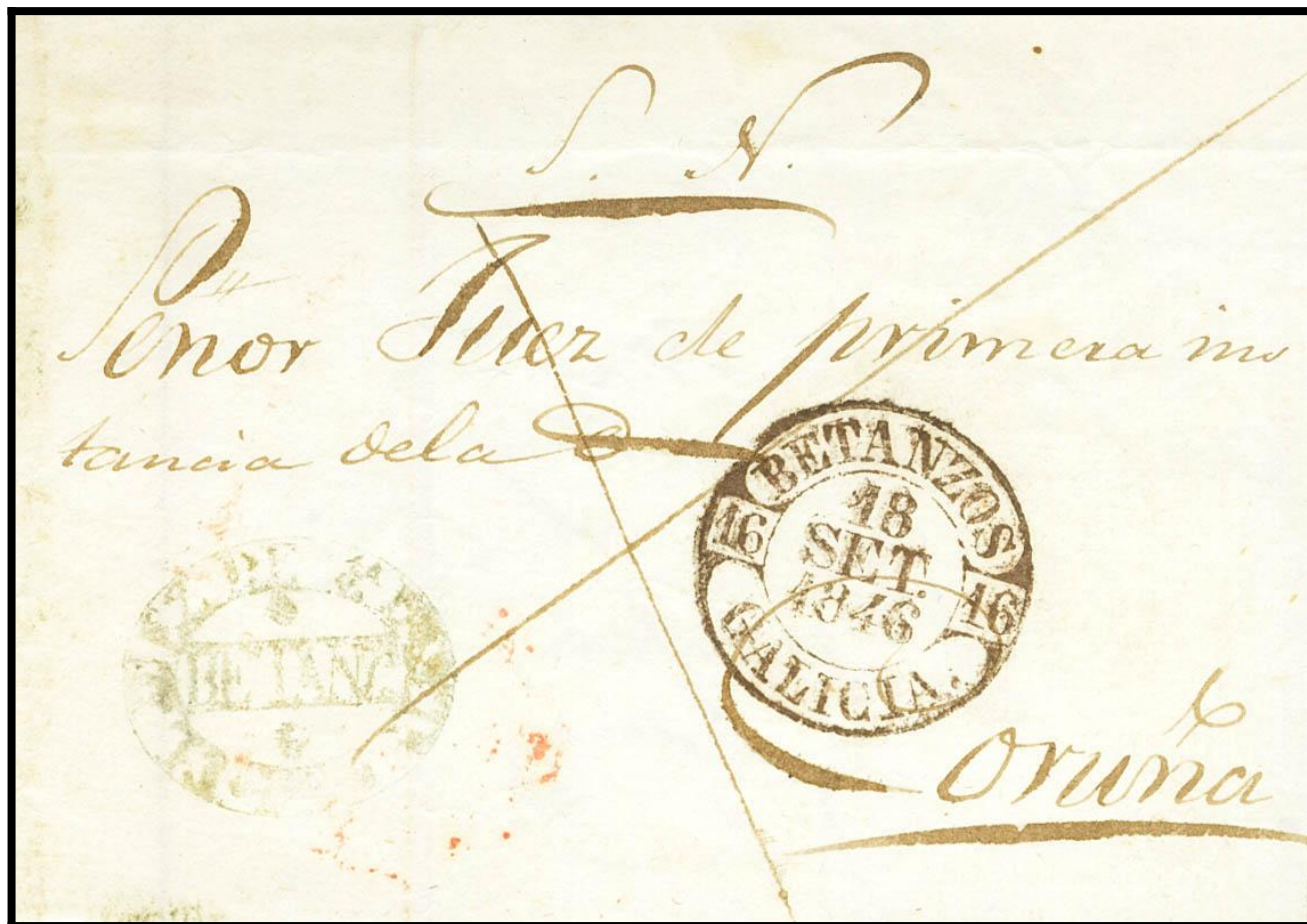 S. N.
Señor Juez de primera ins
tancia dela
BETANZOS
16
18
SET.
1846
16
GALICIA.
Coruña